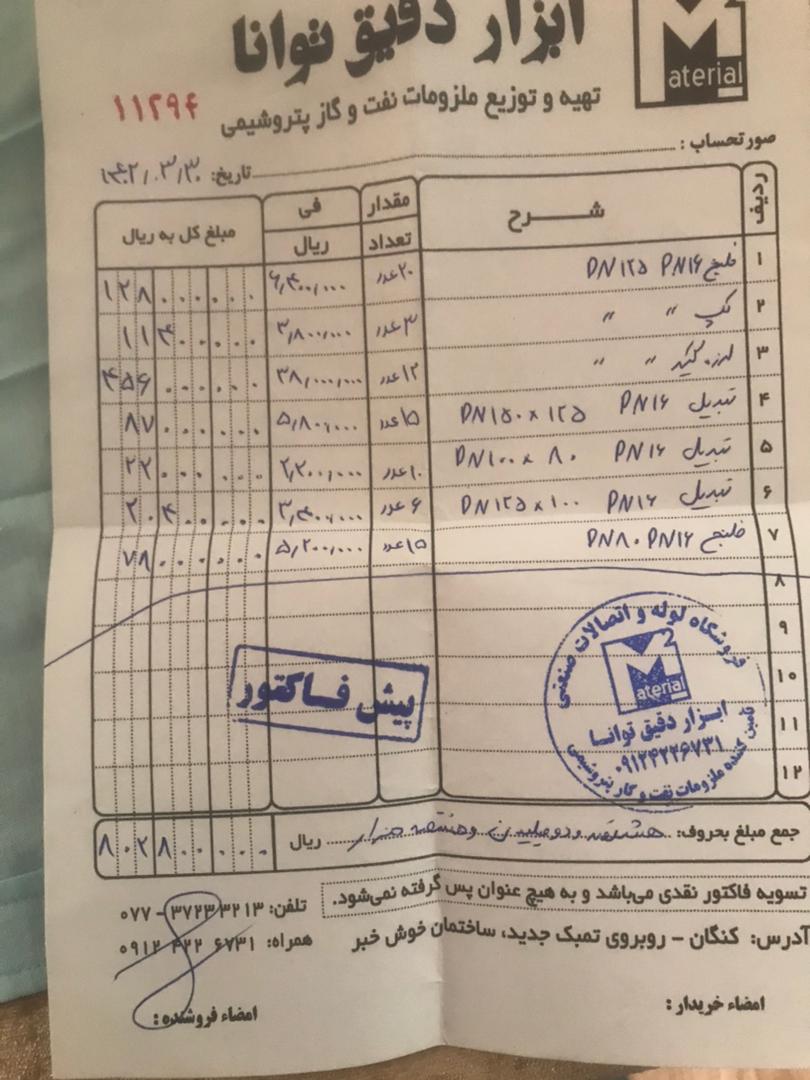 ابزار دقیق توانا
M2
aterial
تهیه و توزیع ملزومات نفت و گاز پتروشیمی
۱۱۲۹۴
صورتحساب :
تاریخ: ۱۴۰۲/۰۳/۳۰
ردیف شرح مقدار فی مبلغ کل به ریال
تعداد ریال
۱ فلنج PN۱۶ DN۱۲۵ ۲۰ عدد ۶,۴۰۰,۰۰۰ ۱۲۸۰۰۰۰۰۰
۲ کپ " " ۳ عدد ۳,۸۰۰,۰۰۰ ۱۱۴۰۰۰۰۰
۳ " " ۱۲ عدد ۳۸,۰۰۰,۰۰۰ ۴۵۶۰۰۰۰۰۰
۴ تبدیل PN۱۶ DN۱۵۰×۱۲۵ ۱۵ عدد ۵,۸۰۰,۰۰۰ ۸۷۰۰۰۰۰۰
۵ تبدیل PN۱۶ DN۱۰۰×۸۰ ۱۰ عدد ۲,۲۰۰,۰۰۰ ۲۲۰۰۰۰۰۰
۶ تبدیل PN۱۶ DN۱۲۵×۱۰۰ ۶ عدد ۳,۴۰۰,۰۰۰ ۲۰۴۰۰۰۰۰
۷ فلنج PN۱۶ DN۸۰ ۱۵ عدد ۵,۲۰۰,۰۰۰ ۷۸۰۰۰۰۰۰
۸
۹
۱۰
۱۱
۱۲
فروشگاه لوله و اتصالات صنعتی
M2
aterial
ابزار دقیق توانا
۰۹۱۲۴۲۲۶۷۳۱
تامین کننده ملزومات نفت و گاز پتروشیمی
پیش فاکتور
جمع مبلغ بحروف: هشتصد و دو میلیون و هشتصد هزار ریال ۸۰۲۸۰۰۰۰۰
تسویه فاکتور نقدی می‌باشد و به هیچ عنوان پس گرفته نمی‌شود.
تلفن: ۳۷۲۳۳۲۱۳ - ۰۷۷
آدرس: کنگان - روبروی تمبک جدید، ساختمان خوش خبر
همراه: ۰۹۱۲ ۴۲۲ ۶۷۳۱
امضاء خریدار :
امضاء فروشنده :